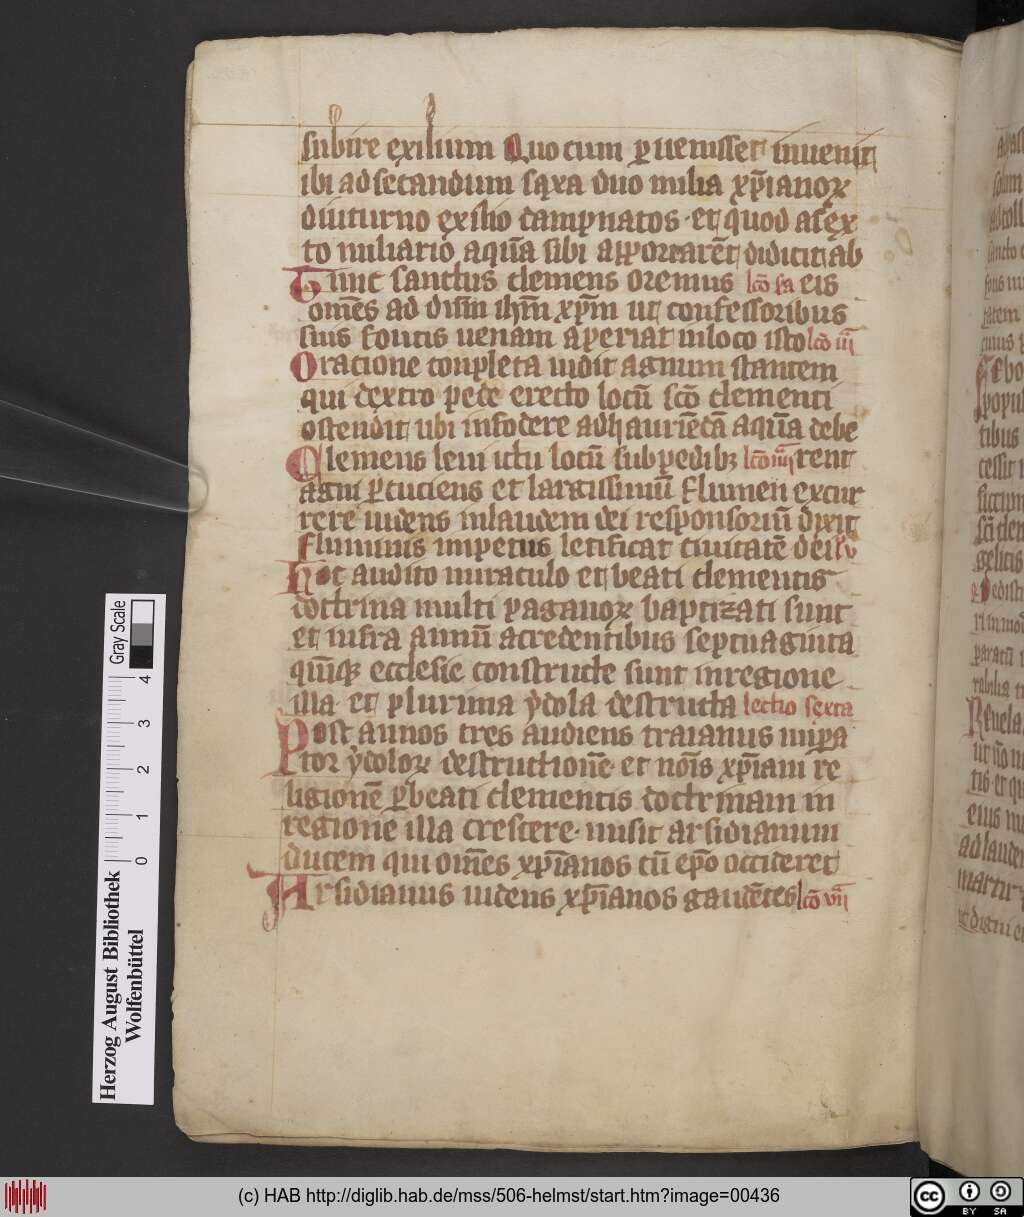 subire exilium Quo cum ꝑuenisset inuenit
ibi ad secandum saxa duo milia xp̄ianoꝝ
diuturno exilio dampnatos · et quod a sex
to miliario aquā sibi apportarēt didicit ab
Tunc sanctus clemens oremus lcō sa eis
om̄es ad dn̄m ihm̄ xp̄m ut confessoribus
suis fontis uenam aperiat in loco isto lcō iii
Oratione conpleta uidit agnum stantem
qui dextro pede erecto locū scō clementi
ostendit ubi infodere ad hauriēdā aquā debe
Clemens leui ictu locū sub pedibꝫ lcō iiii rent
agni ꝑcuciens et largissimū flumen excur
rere uidens in laudem dei responsoriū dixit
Fluminis impetus letificat ciuitatē dei l v
Hoc audito miraculo et beati clementis
doctrina multi paganoꝝ baptizati sunt
et infra annū a credentibus septuaginta
quīqꝫ ecclesie constructe sunt in regione
illa · et plurima ydola destructa lectio sexta
Post annos tres audiens traianus impa
tor ydoloꝝ destructionē · et nōis xp̄iani re
ligionē ꝑ beati clementis doctrinam in
regione illa crescere · misit arsidianum
ducem qui om̄es xp̄ianos cū ep̄o occideret
Arsidianus uidens xp̄ianos gaudētes lcō vii
Herzog August Bibliothek
Wolfenbüttel
Gray Scale
0 1 2 3 4
(c) HAB http://diglib.hab.de/mss/506-helmst/start.htm?image=00436
cc BY SA